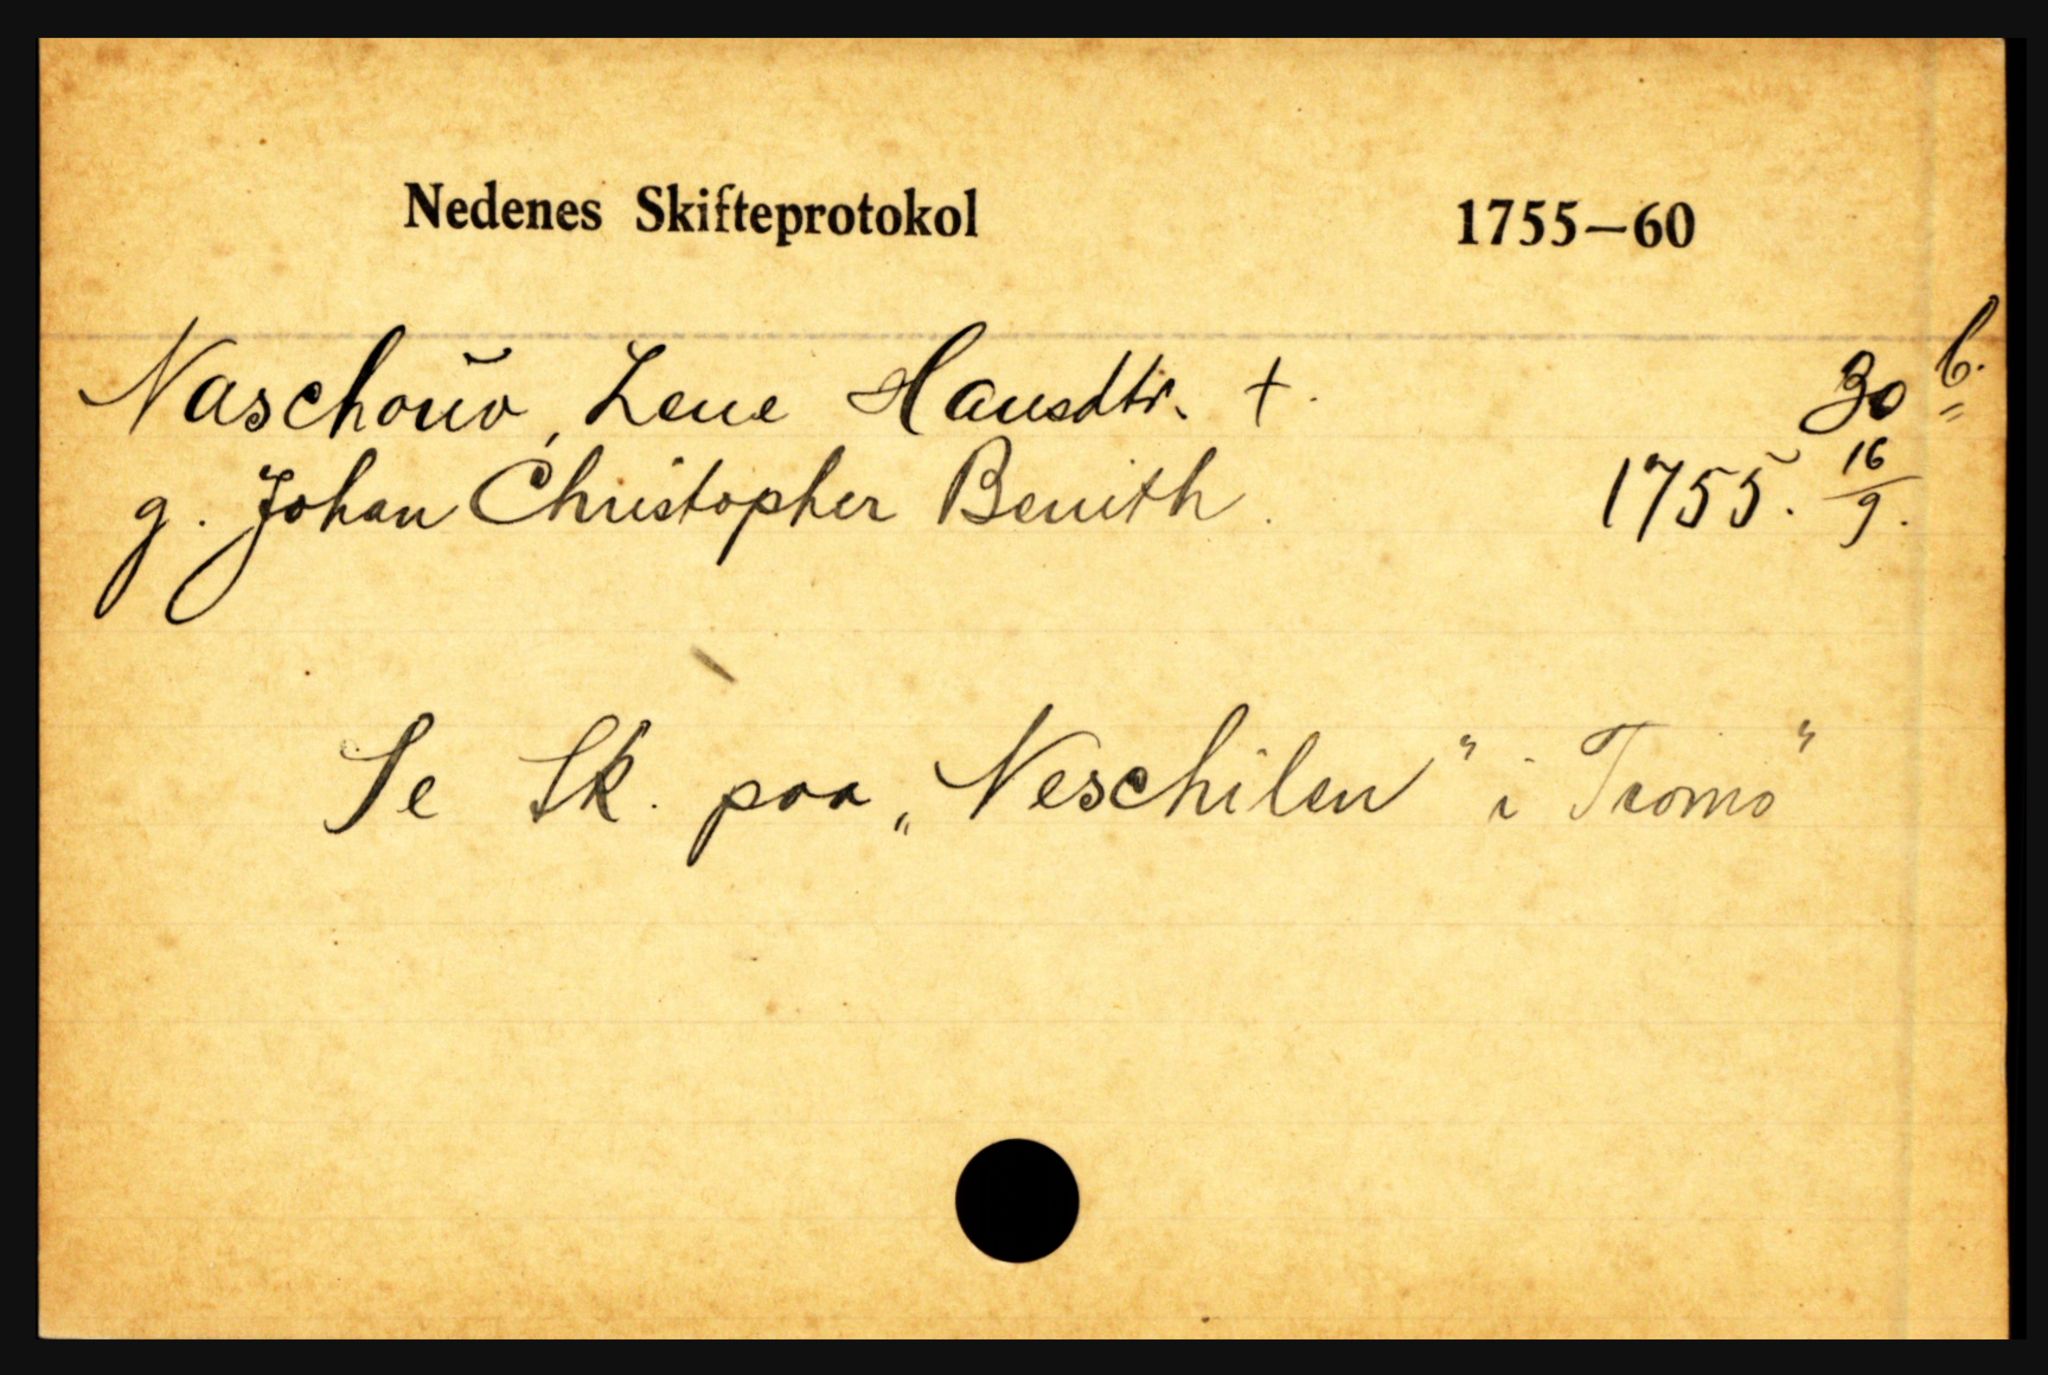 Nedenes Skifteprotokol 1755—60
Naschouv, Lene Hansdtr. † 30 b.
g. Johan Christopher Benith. 1755. 16/9.
Se Sk. paa „Neschilen" i Tromö"